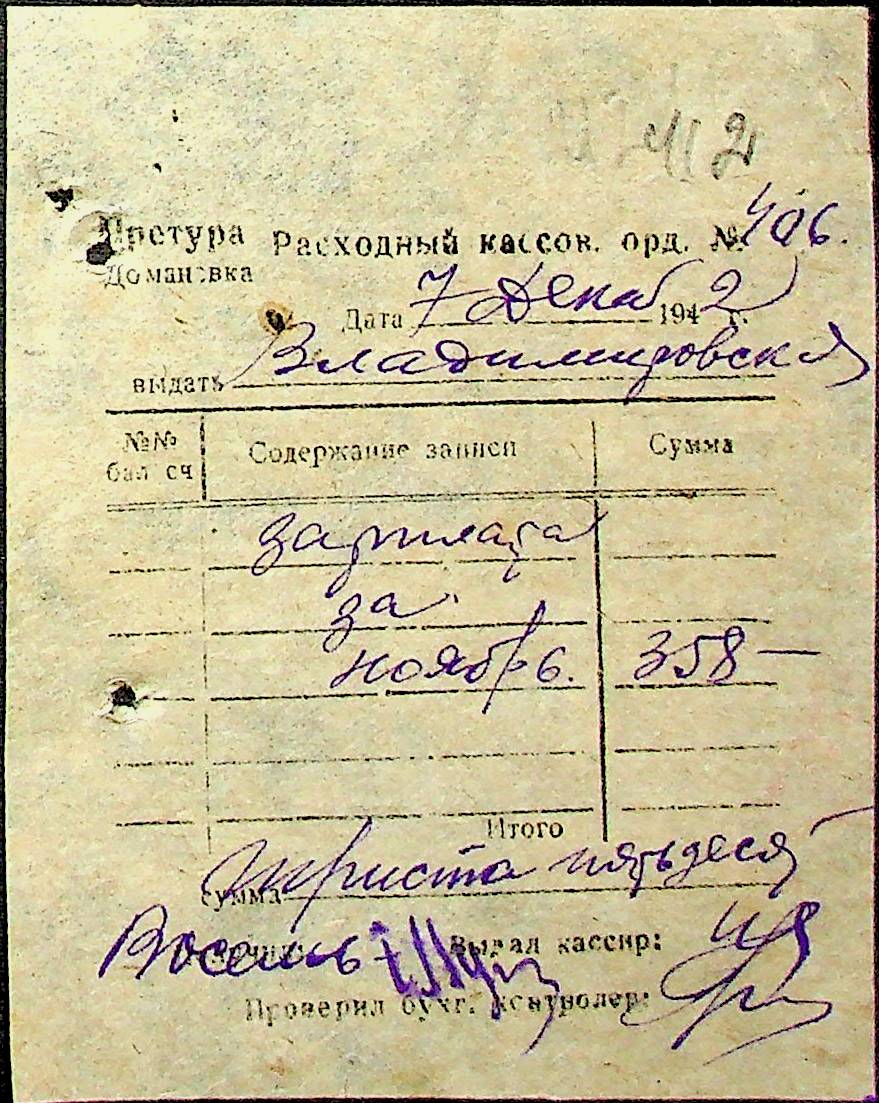 2
Претура Расходный кассов. орд. № 406.
Домановка
Дата 7 Декаб 1942 г.
выдать Владимировская
№№ бал сч Содержание записи Сумма
зарплата
за
ноябрь. 358 —
Итого
Сумма Триста пятьдесят
Восемь Выдал кассир:
Проверил бухг. контролер: